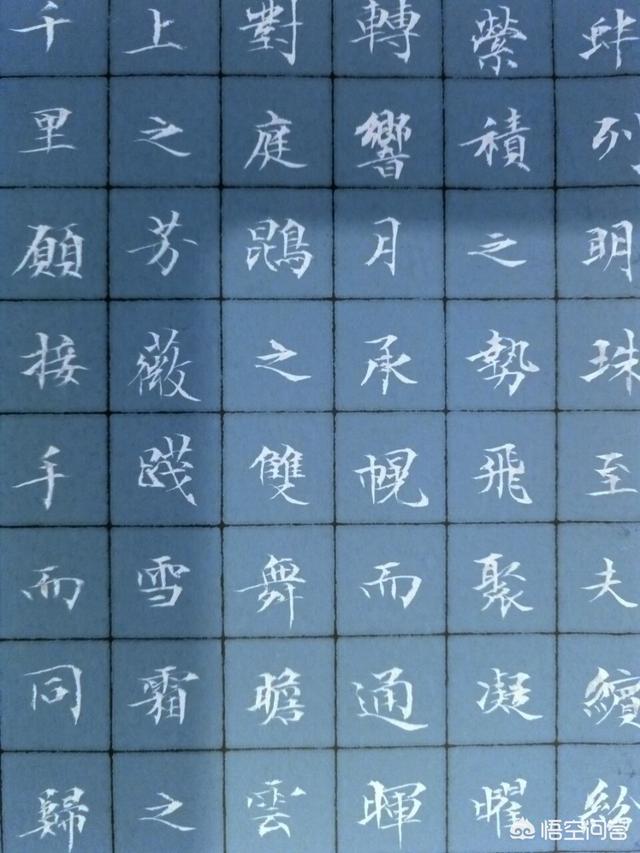 蚌列明珠至夫繽紛
縈積之勢飛聚凝曜
轉響月承幌而通暉
對庭鵾之雙舞瞻雲
上之芳薇踐雪霜之
千里願接手而同歸
悟空问答